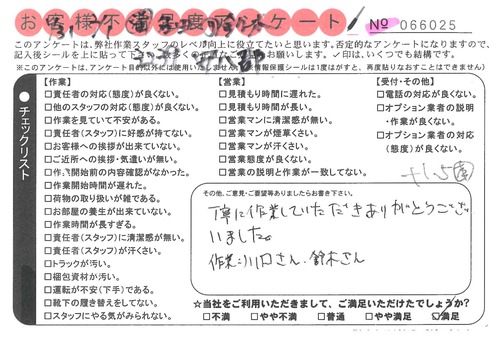 お客様不満足度アンケート
No 066025
このアンケートは、弊社作業スタッフのレベル向上に役立てたいと思います。否定的なアンケートになりますので、
記入後シールを上に貼って下
お願いします。✓印は、いくつでも結構です。
※このアンケートは、アンケート目的以外には使用いたしません。
(情報保護シールは1度はがすと、再度貼りなおすことはできません)
チェックリスト
【作業】
□責任者の対応(態度)が良くない。
□他のスタッフの対応(態度)が良くない。
□作業を見ていて不安がある。
□責任者(スタッフ)に好感が持てない。
□お客様への挨拶が出来ていない。
□ご近所への挨拶・気遣いが無い。
□作業開始前の内容確認がなかった。
□作業開始時間が遅れた。
□荷物の取り扱いが雑である。
□お部屋の養生が出来ていない。
□作業時間が長すぎる。
□責任者(スタッフ)に清潔感が無い。
□責任者(スタッフ)が汗くさい。
□トラックが汚い。
□梱包資材が汚い。
□運転が不安(下手)である。
□靴下の履き替えをしてない。
□スタッフにやる気がみられない。
【営業】
□見積もり時間に遅れた。
□見積もり時間が長い。
□営業マンに清潔感が無い。
□営業マンが煙草くさい。
□営業マンが汗くさい。
□営業態度が良くない。
□営業の説明と作業が一致してない。
【受付・その他】
□電話の対応が良くない。
□オプション業者の説明
・作業が良くない。
□オプション業者の対応
(態度)が良くない。
その他、ご意見・ご要望等ありましたらお書き下さい。
丁寧に作業していただきありがとうござ
いました。
作業:川口さん、鈴木さん
☆当社をご利用いただきまして、ご満足いただけたでしょうか?
□不満 □やや不満 □普通 □やや満足 ☑満足